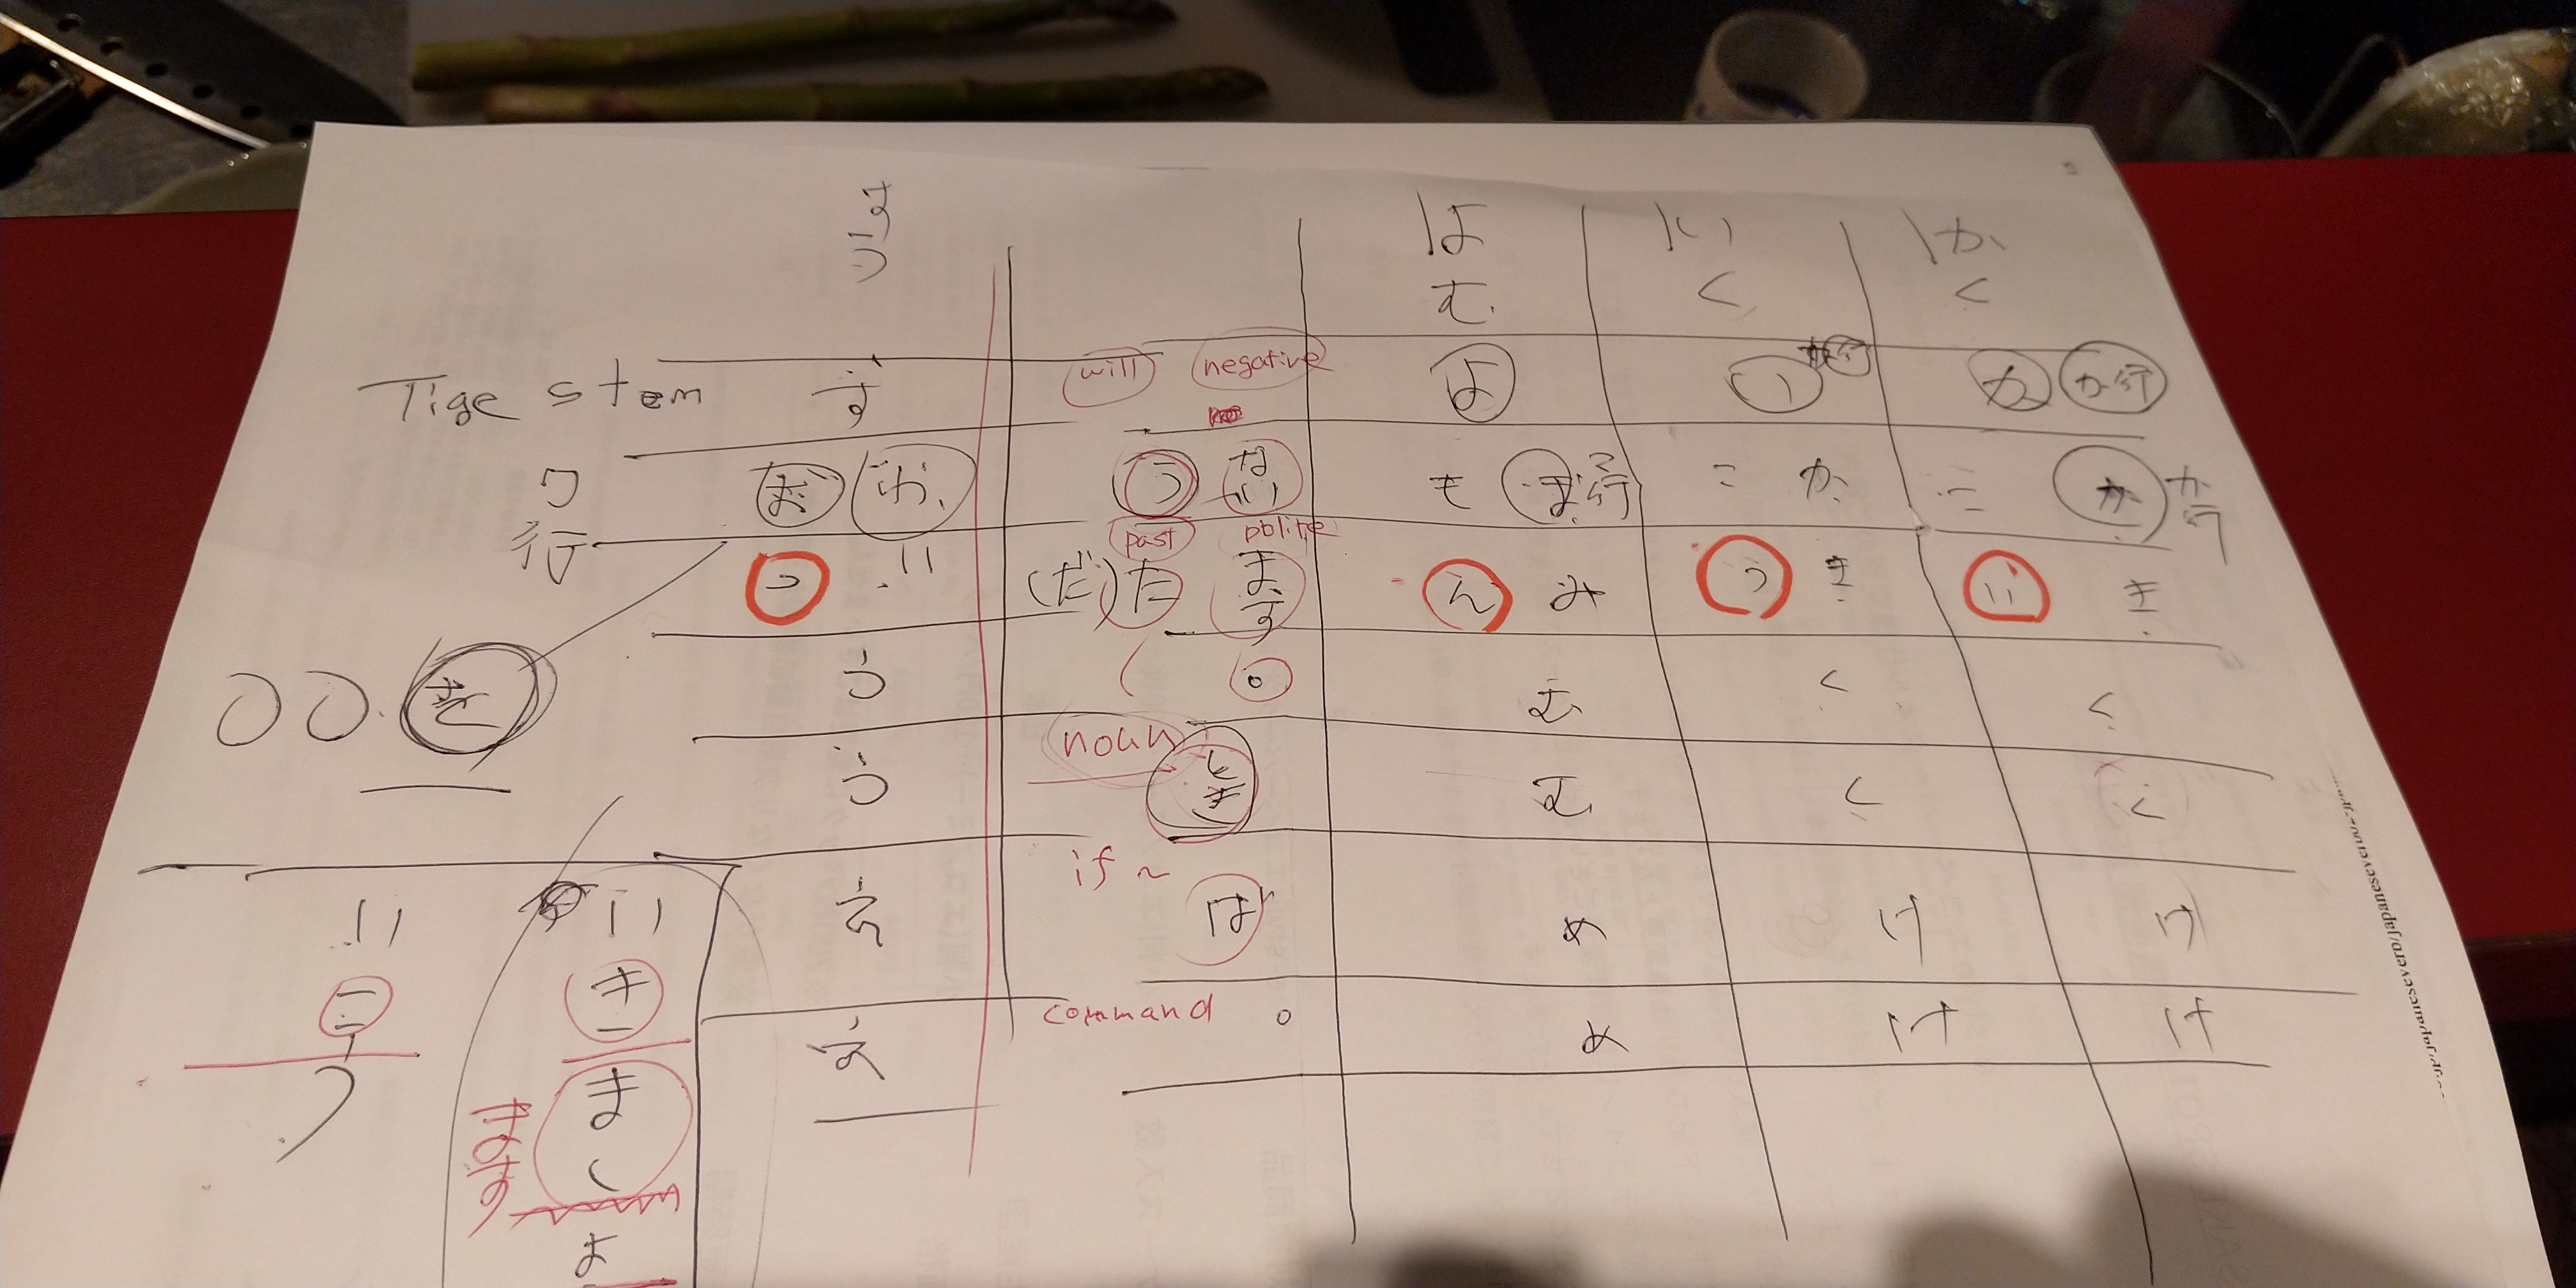 よ い か
む く く
Tige stem す will negative よ い か か行
ワ お わ う ない も ま行 こ か こ か か行
行 past polite
っ い (だ) た ます ん み っ き い き
う 。 む く く
を
noun とき
う む く く
if ~
い い え ば め け け
こ き command 。
え め け け
う まし ます
ょ